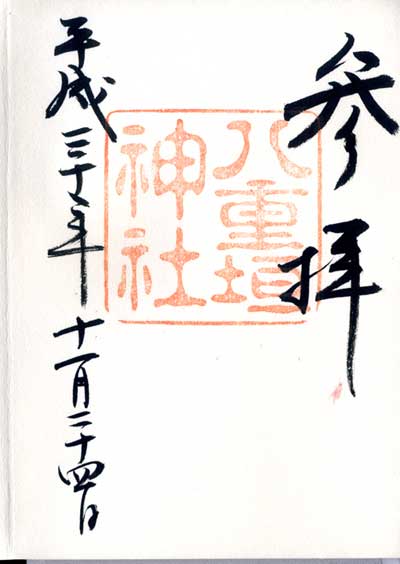 参拝
八重垣
神社
平成三十年十一月二十四日